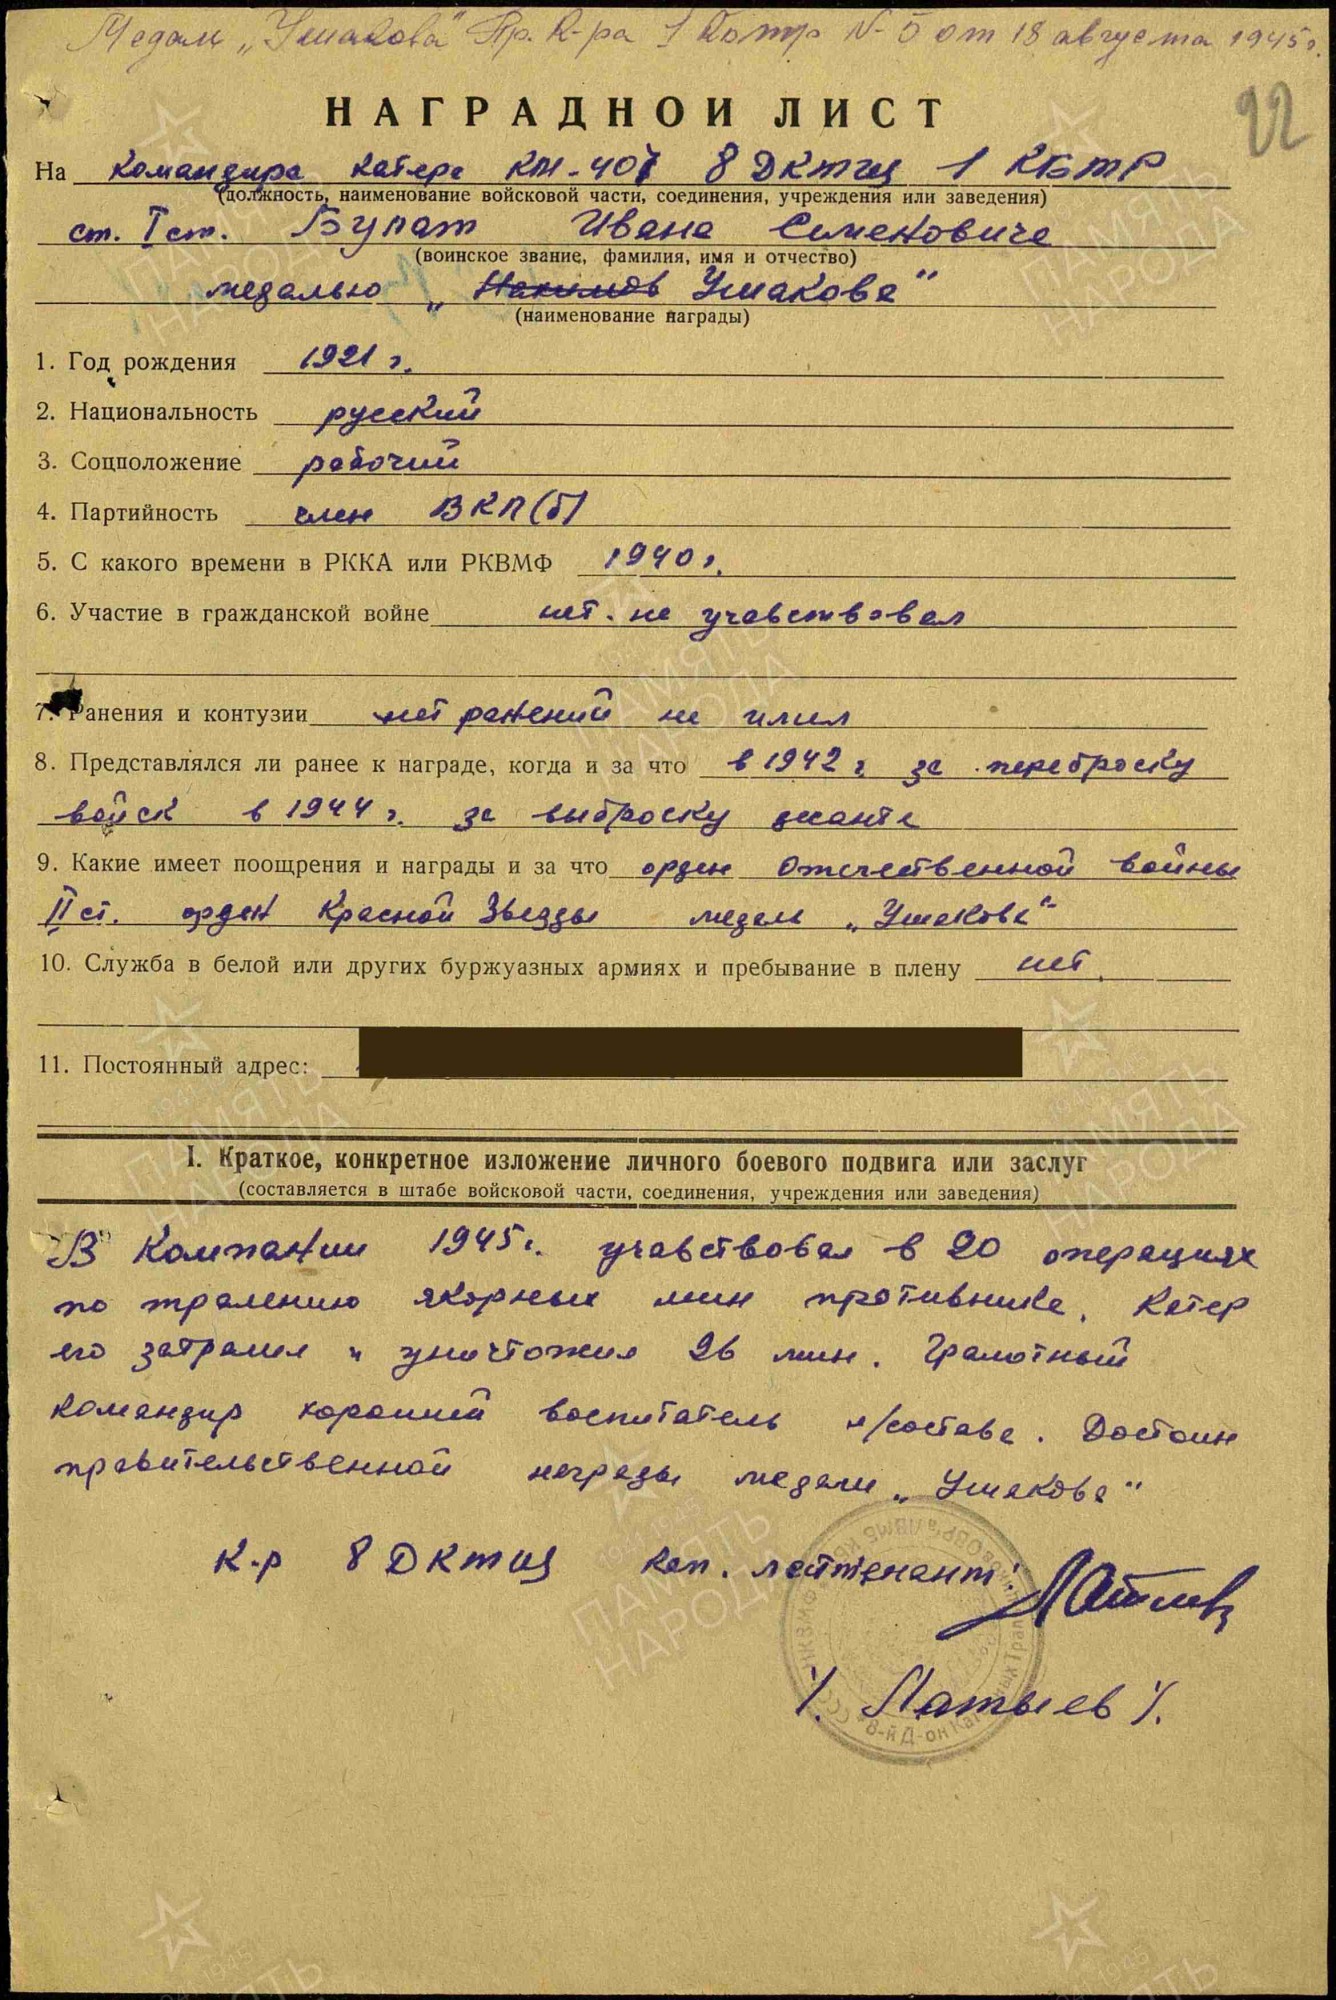 Медаль „Ушакова" Пр. К-ра 1 Кбтр № 5 от 18 августа 1945 г.
22
НАГРАДНОЙ ЛИСТ
На командира катера КМ-407 8 ДКТЩ 1 КБТР
(должность, наименование войсковой части, соединения, учреждения или заведения)
ст. I ст. Булат Ивана Семеновича
(воинское звание, фамилия, имя и отчество)
медалью „Нахимов Ушакова"
(наименование награды)
1. Год рождения 1921 г.
2. Национальность русский
3. Соцположение рабочий
4. Партийность член ВКП(б)
5. С какого времени в РККА или РКВМФ 1940 г.
6. Участие в гражданской войне нет. не учавствовал
7. Ранения и контузии нет ранений не имел
8. Представлялся ли ранее к награде, когда и за что в 1942 г за переброску
войск в 1944 г. за выброску десанта
9. Какие имеет поощрения и награды и за что орден Отечественной войны
II ст. орден Красной Звезды медаль „Ушакова"
10. Служба в белой или других буржуазных армиях и пребывание в плену нет.
11. Постоянный адрес:
I. Краткое, конкретное изложение личного боевого подвига или заслуг
(составляется в штабе войсковой части, соединения, учреждения или заведения)
В Компании 1945 г. учавствовал в 20 операциях
по тралению якорных мин противника. Катер
его затралил и уничтожил 26 мин. Грамотный
командир хороший воспитатель л/состава. Достоин
правительственной награды медали „Ушакова"
К-р 8 ДКТЩ кап. лейтенант:
/. Латыев /.
8-й Д-он Кат
ПАМЯТЬ НАРОДА
1941-1945